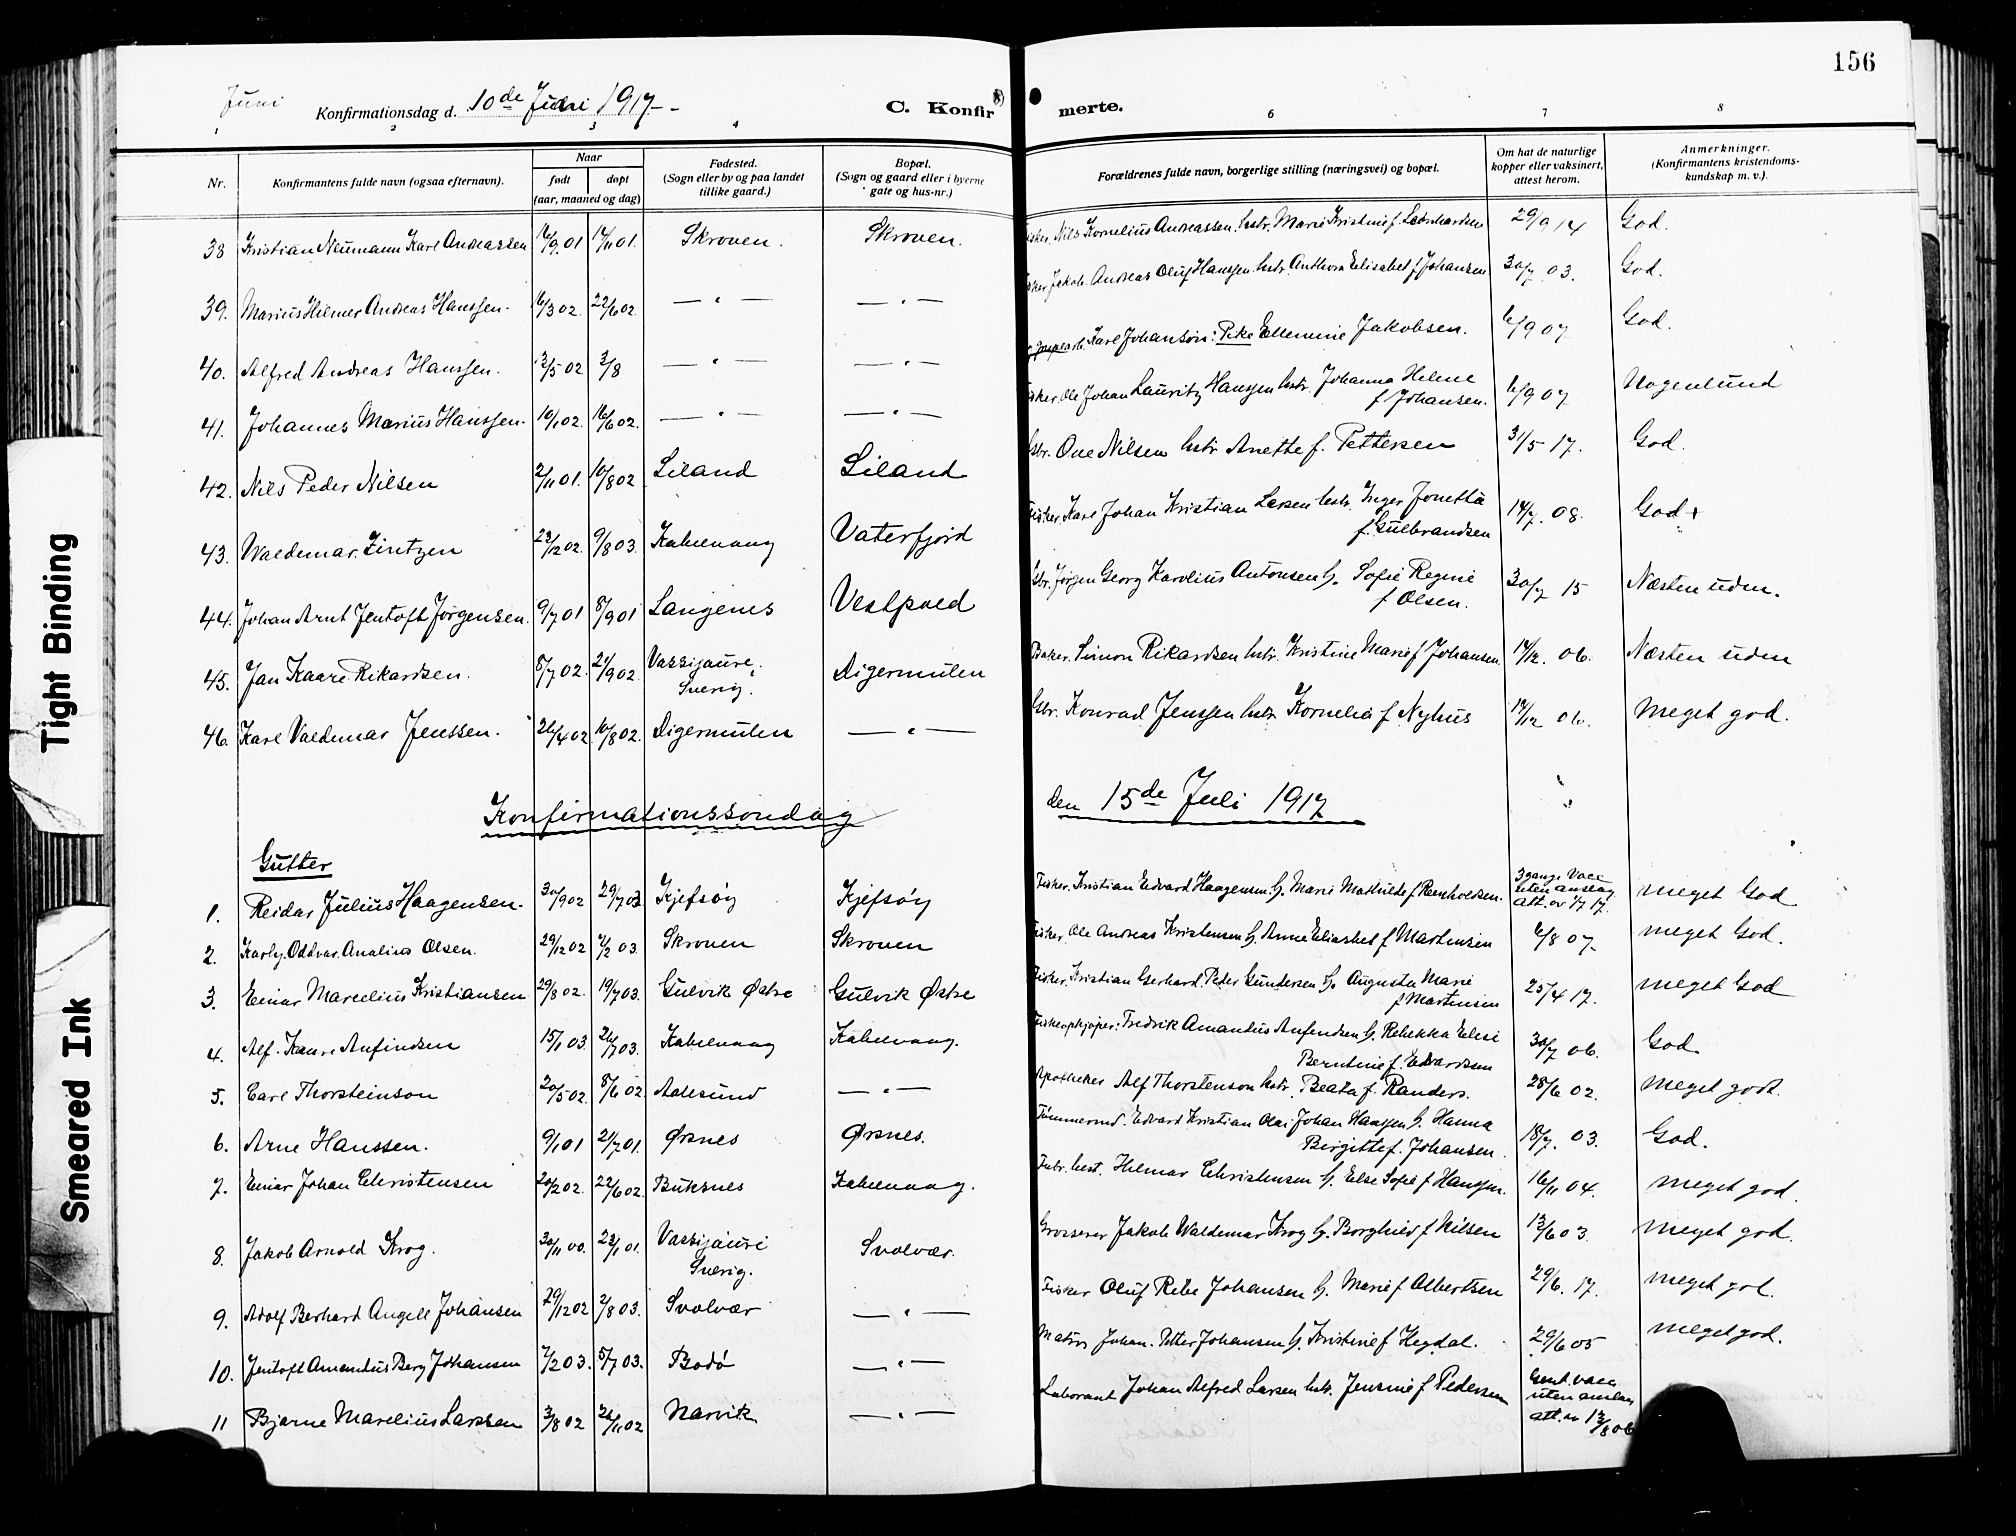 156
Juni
Konfirmationsdag d. 10de Juni 1917 -
C. Konfirmerte.
1 2 3 4 6 7 8
Nr. Konfirmantens fulde navn (ogsaa efternavn). Naar født døpt (aar, maaned og dag) Fødested. (Sogn eller by og paa landet tillike gaard.) Bopæl. (Sogn og gaard eller i byerne gate og hus-nr.) Forældrenes fulde navn, borgerlige stilling (næringsvei) og bopæl. Om hat de naturlige kopper eller vaksinert, attest herom. Anmerkninger. (Konfirmantens kristendomskundskap m. v.).
38 Kristian Neumann Karl Andreassen 01 01. Skroven. Skroven. Nils Kornelius Andreassen, hstr. Marie Kristine f. Leonhardsen 29/9 14 God.
39. Marius Hilmer Andreas Hanssen. 16/3 02. 22/6 02. — " — — " — Jakob Andreas Oluf Hanssen hstr. Anthora Elisabet f Johansen 30/7. 03. God.
40. Alfred Andreas Hanssen. 5 02 3/8 — " — — " — Karl Johanson: Pike Ellenmie Jakobsen. 6/9 07 God.
41. Johannes Marius Hanssen. 10/1 02. 16/6 02. — " — — " — Ole Johan Lauritz Hanssen hstr. Johanna Helene f Johansen. 6/9 07 Nogenlund
42. Nils Peder Nilsen 2/11 01. 10/8 02 Liland Liland Gbr. Ove Nilsen hstr Anette f. Pettersen 31/5 17. God.
43. Waldemar Zintzen 12 02. 9/8 03. Kabelvaag Vaterfjord Fisker. Karl Johan Kristian Larsen hstr. Inger Jonetta f. Gulbrandsen 14/7. 08. God +
44. Johan Arnt Jentoft Jørgensen. 9/7 01 8/9 01 Langenes Vestpold Gbr. Jørgen Georg Karolius Antonsen h. Sofie Regine f Olsen. 30/7 15 Næsten uden.
45. Jan Kaare Rikardsen. 8/7 02. 21/9 02. Vassijaure. Sverig. Digermulen Baker. Simon Rikardsen hstr. Kristine Marie f Johansen. 14/12. 06. Næsten uden
46. Karl Valdemar Jenssen. 26/4 02. 10/8 02. Digermulen — " — Gbr. Konrad Jenssen hstr Kornelia f Nyhus 14/12 06. Meget god.
Konfirmationssøndag den 15de Juli 1917
Gutter
1. Reidar Julius Haagensen. 30/9 02 29/7 03 Kjefsøy Kjefsøy Fisker. Kristian Edvard Haagensen h. Marie Mathilde f Reinholdsen. 3 gange Vacc uten anslag att. av 1/7 17. meget God
2. Karly. Oddvar. Analius Olsen. 29/12 02 7/2 03. Skroven Skroven Fisker. Ole Andreas Kristensen h. Anne Eliasbet f Martinsen 6/8 07. meget God.
3. Einar Marcelius Kristiansen 29/8 02. 19/7 03. Gulvik Østre Gulvik Østre Fisker. Kristian Gerhard Peder Gundersen h. Augusta Marie f Martinsen 25/4 17. meget God
4. Alf. Kaare Anfindsen 15/1 03. 26/7 03. Kabelvaag Kabelvaag. Fiskeopkjøper: Fredrik Amandus Anfindsen h. Rebekka Elise Berntine f. Edvardsen 30/7 06. God.
5. Carl Thorsteinson 20/5 02. 8/6 02. Aalesund — " — Apotheker Alf Thorstenson hstr. Beata f. Randers. 28/6 02. meget godt.
6. Arne Hanssen. 9/1 01 21/7 01. Ørsnes Ørsnes. Tømmermd. Edvard Kristian Olai Johan Hanssen h. Hanna Birgitte f. Johansen. 18/7. 03. God.
7. Einar Johan Christensen 20/2 02. 22/6 02. Buksnes Kabelvaag. Hilmar Christensen h. Else Sofie f Hanssen. 16/11 04. meget god.
8. Jakob Arnold Krog. 30/11 00. 1 01. Vassijauri Sverig. Svolvær. Grosserer Jakob Waldemar Krog h. Borghild f Nilsen 13/6 03. meget god.
9. Adolf Berhard Angell Johansen 29/12 02 2/8 03. Svolvær — " — Fisker Oluf Rebe Johansen h. Marie f Albertsen 29/6. 17. meget god.
10. Jentoft Amandus Berg Johansen 7/2 03. 5/7 03. Bodø — " — Johan. Petter Johansen h Kristine f Hegdal. 29/6 05 meget god.
11 Bjarne Marelius Larssen 3/8 02 26/11 02 Narvik — " — Laborant Johan Alfred Larsen hstr. Jensine f Pedersen vacc uten anslag att. av 13/8 06
Tight Binding
Smeared Ink